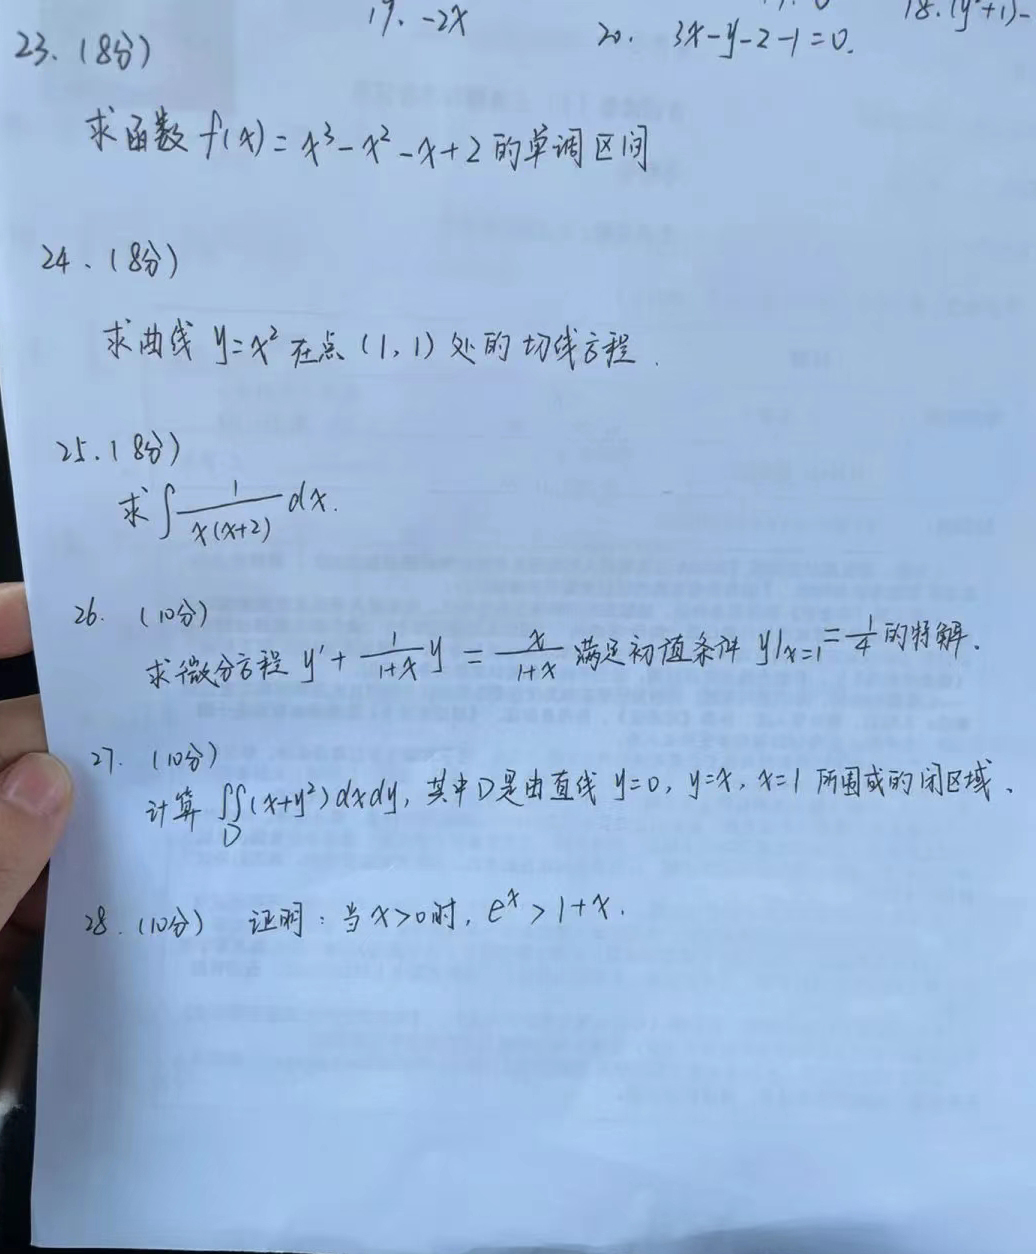 19. -2x
20. 3x-y-z-1=0.
18. (y²+1)-
23. (8分)
求函数 f(x)=x³-x²-x+2 的单调区间
24、(8分)
求曲线 y=x² 在点 (1, 1) 处的切线方程.
25. (8分)
求∫ 1/(x(x+2)) dx.
26. (10分)
求微分方程 y′ + 1/(1+x) y = x/(1+x) 满足初值条件 y|x=1 = 1/4 的特解.
27. (10分)
计算 ∬D (x+y²)dxdy, 其中D是由直线 y=0, y=x, x=1 所围成的闭区域、
28. (10分) 证明: 当x>0时, eˣ > 1+x.